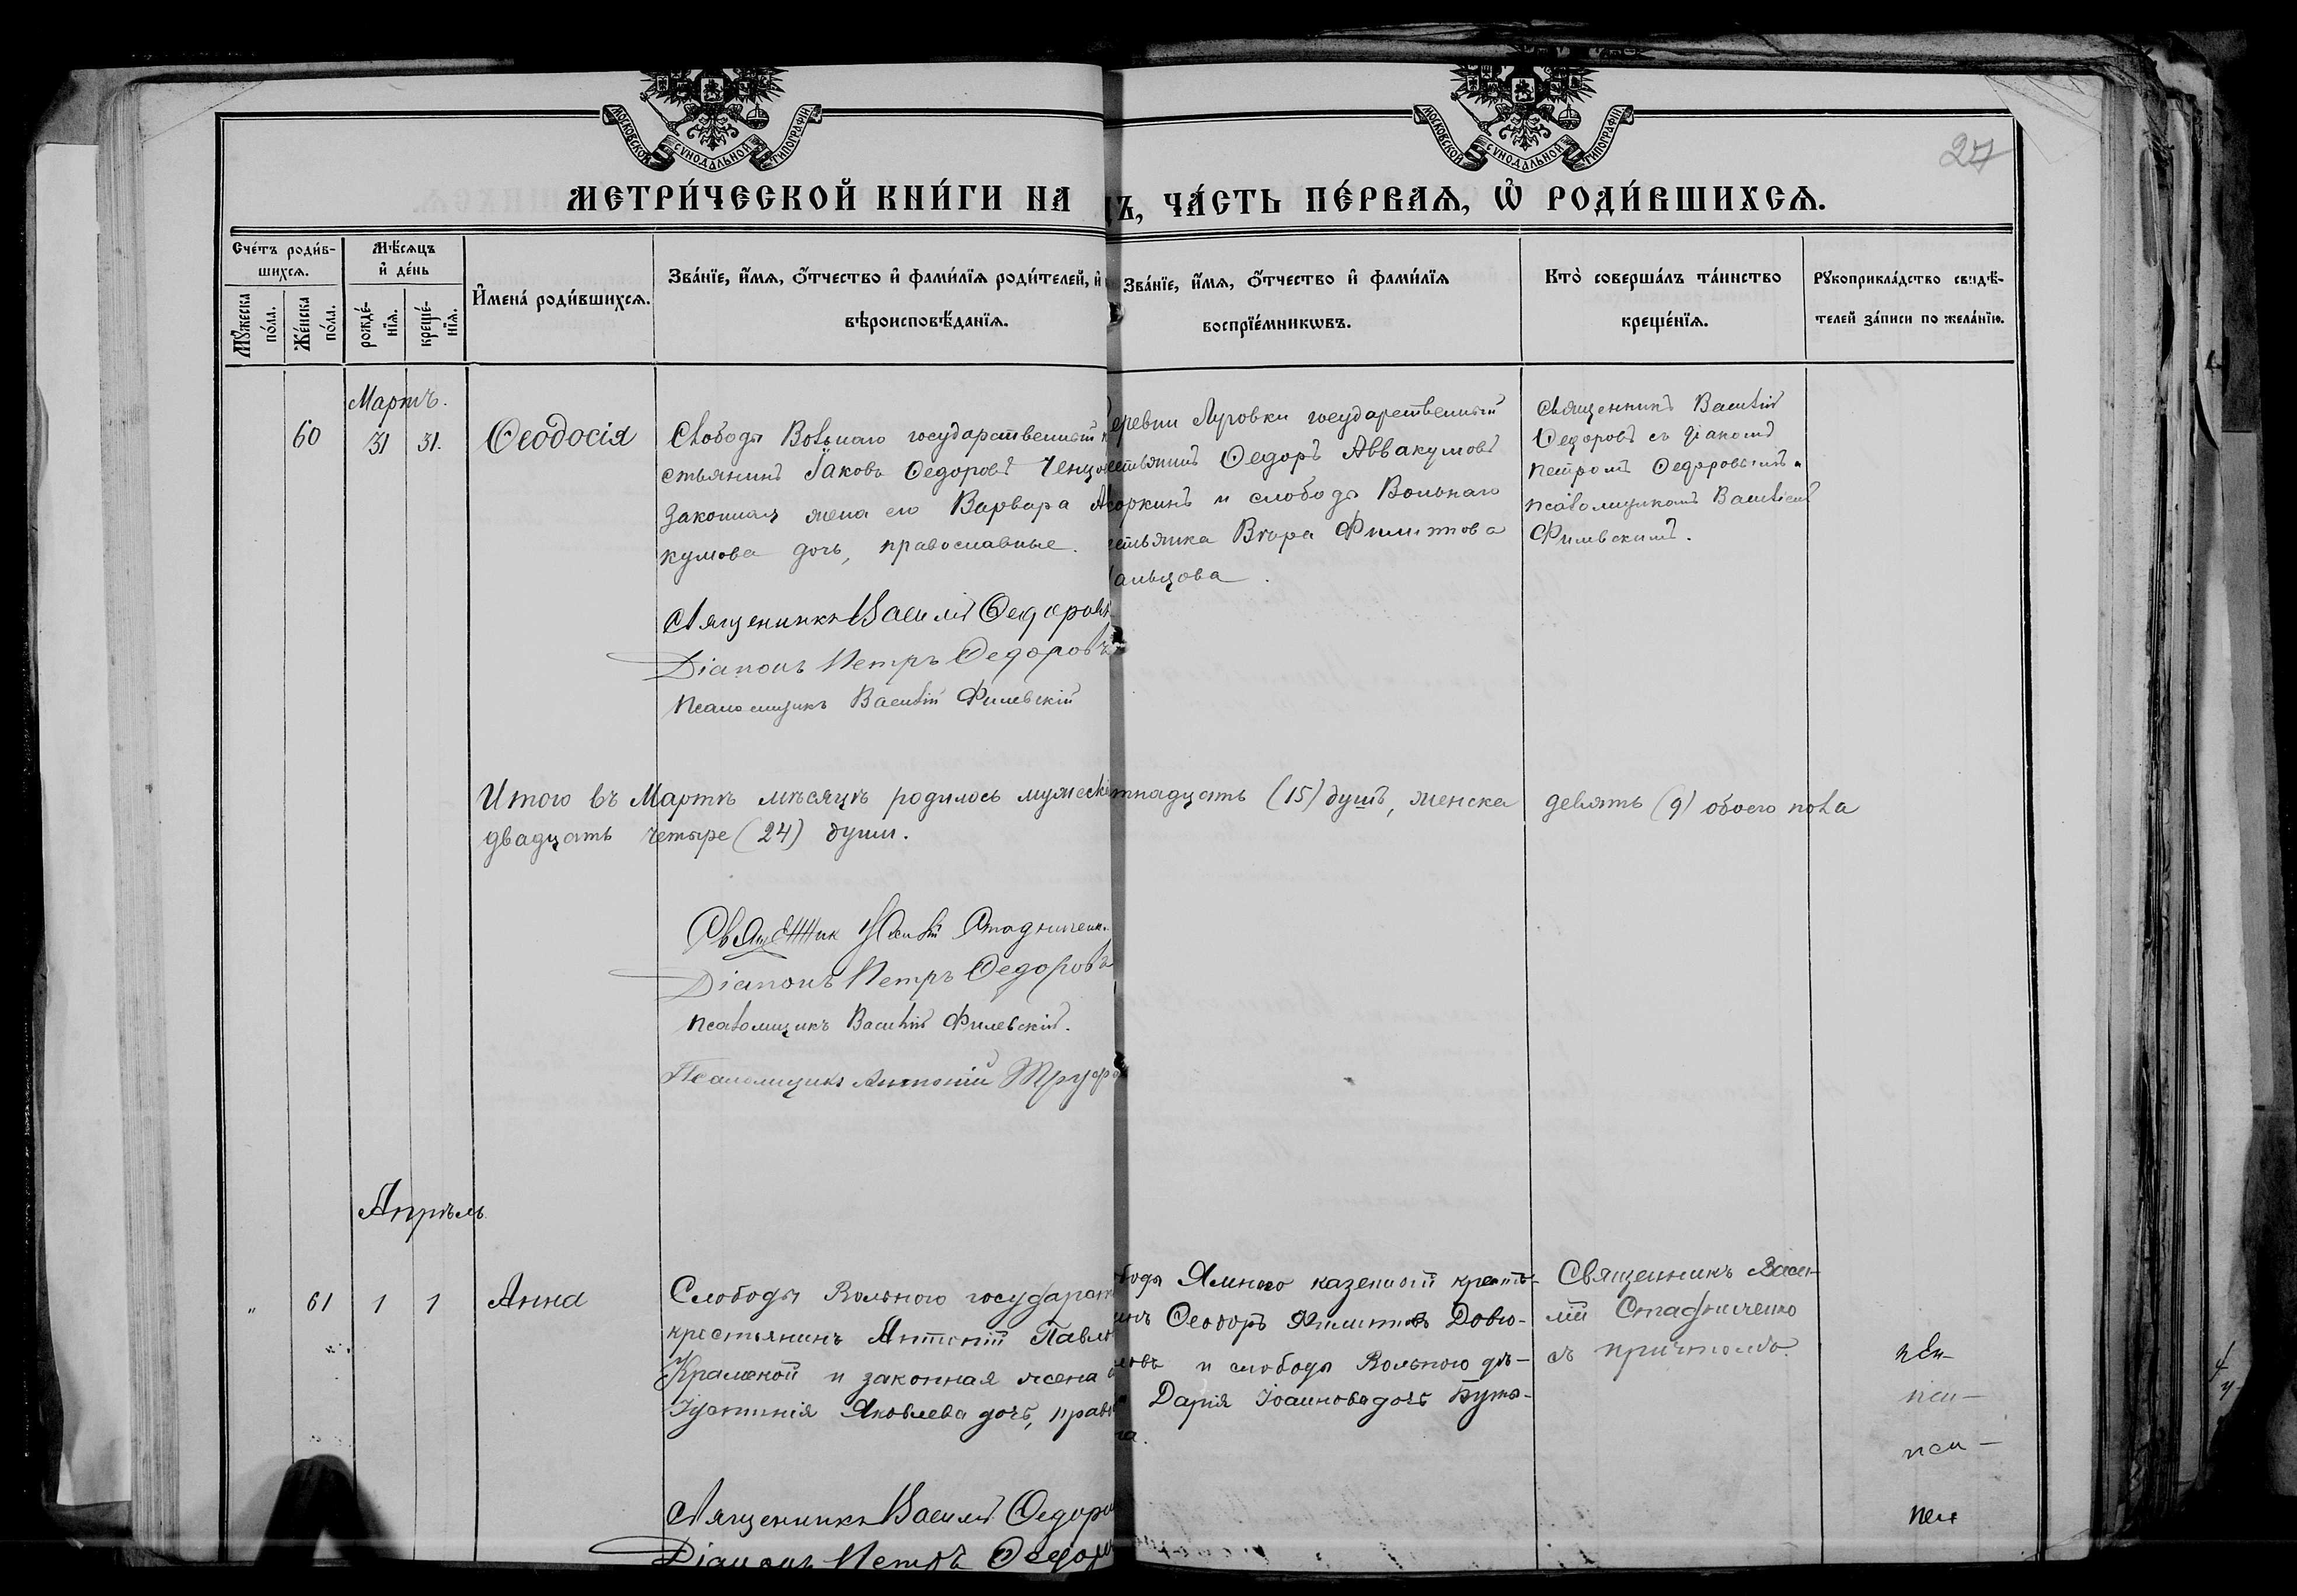 МОСКОВСКОЙ СУНОДАЛЬНОЙ ТИПОГРАФІИ
МОСКОВСКОЙ СУНОДАЛЬНОЙ ТИПОГРАФІИ
27
МЕТРИ́ЧЕСКОЙ КНИ́ГИ НА
Ъ, ЧА́СТЬ ПЕ́РВАѦ, Ѽ РОДИ́ВШИХСѦ.
Сче́тъ роди́в-
шихсѧ.
Мѣ́сѧцъ
и҆ де́нь
Мꙋ́жеска
по́ла.
Же́нска
по́ла.
рожде́-
нїѧ.
креще́-
нїѧ.
И҆мена̀ роди́вшихсѧ.
Зва́нїе, и҆́мѧ, ѻ҆́тчество и҆ фами́лїѧ роди́телей, и҆
вѣроисповѣ́данїѧ.
Зва́нїе, и҆́мѧ, ѻ҆́тчество и҆ фами́лїѧ
воспрїе́мникѡвъ.
Кто̀ соверша́лъ та́инство
креще́нїѧ.
Рꙋкоприкла́дство свидѣ́-
телей за́писи по жела́нїю.
Мартъ.
60
31
31.
Ѳеодосія
Слободы Вольнаго государственный
стьянинъ Іаковъ Ѳедоровъ Ченцо
законная жена его Варвара А
кумова дочь, православные.
еревни Луговки государственный
стьянинъ Ѳедоръ Аввакумовъ
горкинъ и слободы Вольнаго
стьянка Вѣра Филиппова
альцова.
Священникъ Василій
Ѳедоровъ съ діакономъ
Петромъ Ѳедоровымъ и
псаломщикомъ Василіемъ
Филевскимъ.
Священникъ Василій Ѳедоровъ
Діаконъ Петръ Ѳедоровъ
Псаломщикъ Василій Филевскій
Итого въ Мартѣ мѣсяцѣ родилось мужеска
тнадцать (15) душъ, женска девять (9) обоего пола
двадцать четыре (24) души.
Священник Василій Стадниченк
Діаконъ Петръ Ѳедоровъ
Псаломщикъ Василій Филевскій.
Псаломщикъ Антоній
Апрѣль
"
61
1
1
Анна
Слободы Вольного государст
крестьянинъ Антоній Павло
Крамской и законная жена
Іустинія Яковлева дочь, прав
боды Ямного казенный крестья-
инъ Ѳеодоръ Филиповъ Довго-
ловъ и слободы Вольного дѣ-
Дарія Іоаннова дочь Буто-
ва.
Священникъ Васи-
лій Стадниченко
съ причтомъ.
пси-
пси-
пси-
пси
Священникъ Василій Ѳедоро
Діаконъ Петръ Ѳедоро